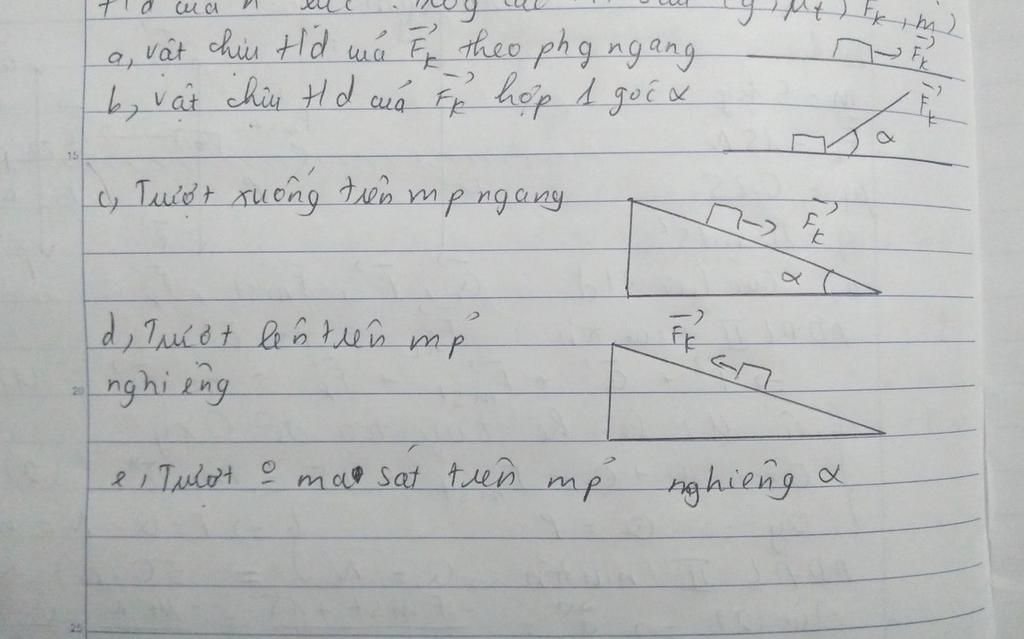 a, vật chịu tld của F→k theo phg ngang
F→k
b, vật chịu tld của F→k hợp 1 góc α
F→k
α
15
c, Trượt xuống trên mp ngang
F→k
α
d, Trượt lên trên mp
F→k
nghiêng
20
e, Trượt o ma sát trên mp nghiêng α
25